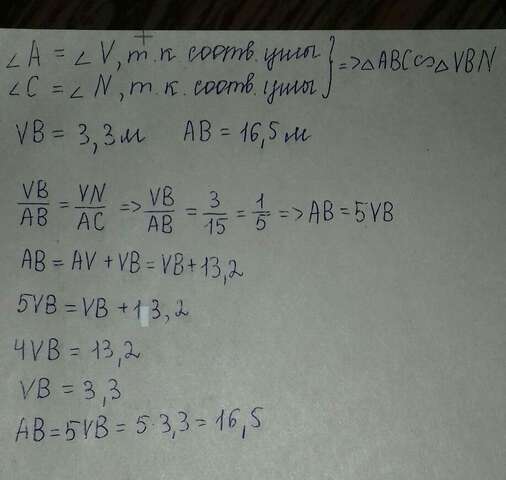 ∠A = ∠V, т.к соотв. углы
∠C = ∠N, т.к. соотв. углы } => △ABC ∽ △VBN
VB = 3,3м AB = 16,5м
VB/AB = VN/AC => VB/AB = 3/15 = 1/5 => AB = 5VB
AB = AV + VB = VB + 13,2
5VB = VB + 13,2
4VB = 13,2
VB = 3,3
AB = 5VB = 5·3,3 = 16,5